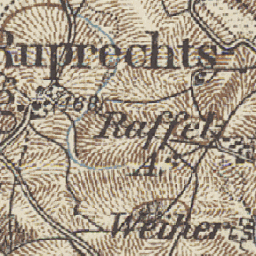 Ruprechts
468
Raffelt
A.
Weiher